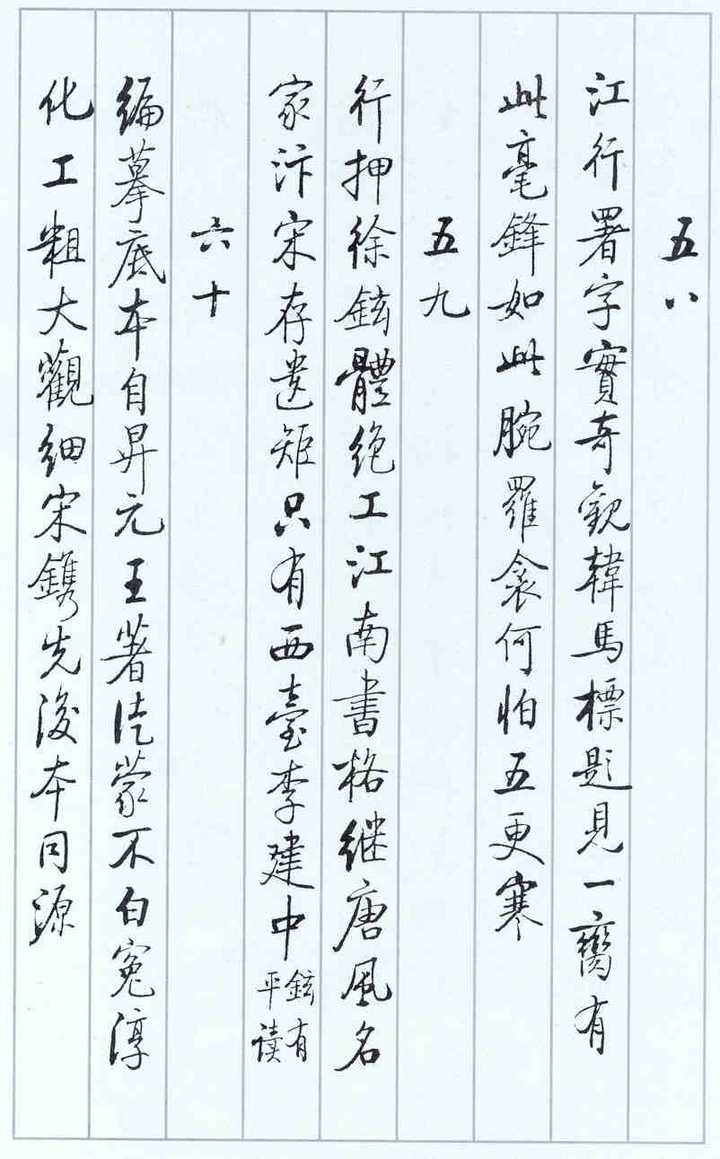 五八
江行署字實奇観韓馬標題見一臠有
此毫鋒如此腕羅衾何怕五更寒
五九
行押徐鉉體絶工江南書格继唐風名
家汴宋存遗矩只有西臺李建中
鉉有
平读
六十
編摹底本自昇元王著徒蒙不白冤淳
化工粗大觀細宋鐫先後本同源